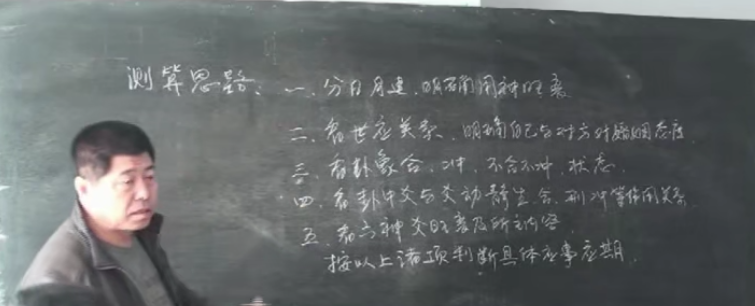 测算思路: 一、分日月建,明确用神旺衰
二、看世应关系 明确自己与对方对婚姻态度
三、看卦象合、冲、不合不冲、状态
四、看卦中爻与爻动静生合刑冲等作用关系
五、看六神爻旺衰及所主内容
按以上诸项判断具体应事应期